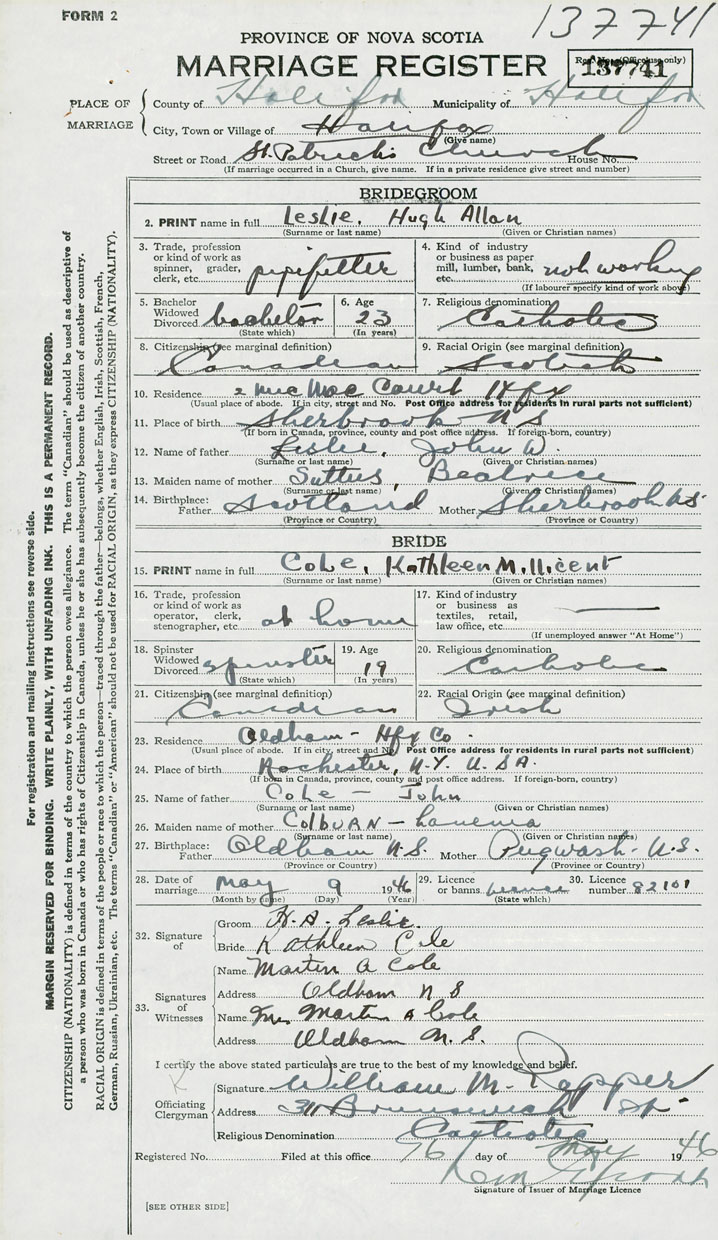 FORM 2
137741
PROVINCE OF NOVA SCOTIA
MARRIAGE REGISTER
Reg. No. (Office use only)
137741
PLACE OF MARRIAGE
County of Halifax Municipality of Halifax
City, Town or Village of Halifax
(Give name)
Street or Road St. Patrick's Church House No.
(If marriage occurred in a Church, give name. If in a private residence give street and number)
BRIDEGROOM
2. PRINT name in full Leslie, Hugh Allan
(Surname or last name) (Given or Christian names)
3. Trade, profession or kind of work as spinner, grader, clerk, etc. pipefitter
4. Kind of industry or business as paper mill, lumber, bank, etc. not working
(If labourer specify kind of work above)
5. Bachelor Widowed Divorced bachelor
(State which)
6. Age 23
(In years)
7. Religious denomination Catholic
8. Citizenship (see marginal definition) Canadian
9. Racial Origin (see marginal definition) Scotish
10. Residence 2 Mic Mac Court Hfx
(Usual place of abode. If in city, street and No. Post Office address for residents in rural parts not sufficient)
11. Place of birth Sherbrook N S
(If born in Canada, province, county and post office address. If foreign-born, country)
12. Name of father Leslie, John W.
(Surname or last name) (Given or Christian names)
13. Maiden name of mother Beatrice
(Surname or last name) (Given or Christian names)
14. Birthplace: Father Scotland Mother Sherbrook N.S.
(Province or Country) (Province or Country)
BRIDE
15. PRINT name in full Cole, Kathleen Millicent
(Surname or last name) (Given or Christian names)
16. Trade, profession or kind of work as operator, clerk, stenographer, etc at home
17. Kind of industry or business as textiles, retail, law office, etc.
(If unemployed answer "At Home")
18. Spinster Widowed Divorced spinster
(State which)
19. Age 19
(In years)
20. Religious denomination Catholic
21. Citizenship (see marginal definition) Canadian
22. Racial Origin (see marginal definition) Irish
23. Residence Oldham - Hfx Co.
(Usual place of abode. If in city, street and No. Post Office address for residents in rural parts not sufficient)
24. Place of birth Rochester, N.Y. U.S.A.
(If born in Canada, province, county and post office address. If foreign-born, country)
25. Name of father Cole - John
(Surname or last name) (Given or Christian names)
26. Maiden name of mother Colburn -
(Surname or last name) (Given or Christian names)
27. Birthplace: Father Oldham N.S. Mother Pugwash - N.S.
(Province or Country) (Province or Country)
28. Date of marriage May 9 1946
(Month by name) (Day) (Year)
29. Licence or banns licence
(State which)
30. Licence number 82101
32. Signature of
Groom H. A. Leslie.
Bride Kathleen Cole
33. Signatures of Witnesses
Name Martin A Cole
Address Oldham N S
Name Mrs Martin A Cole
Address Oldham N.S.
I certify the above stated particulars are true to the best of my knowledge and belief.
Officiating Clergyman
Signature William M.
Address Brunswick St.
Religious Denomination Catholic
Registered No. Filed at this office 16 day of May 1946
Signature of Issuer of Marriage Licence
[SEE OTHER SIDE]
For registration and mailing instructions see reverse side.
MARGIN RESERVED FOR BINDING. WRITE PLAINLY, WITH UNFADING INK. THIS IS A PERMANENT RECORD.
CITIZENSHIP (NATIONALITY) is defined in terms of the country to which the person owes allegiance. The term "Canadian" should be used as descriptive of
a person who was born in Canada or who has rights of Citizenship in Canada, unless he or she has subsequently become the citizen of another country.
RACIAL ORIGIN is defined in terms of the people or race to which the person—traced through the father—belongs, whether English, Irish, Scottish, French,
German, Russian, Ukrainian, etc. The terms "Canadian" or "American" should not be used for RACIAL ORIGIN, as they express CITIZENSHIP (NATIONALITY).